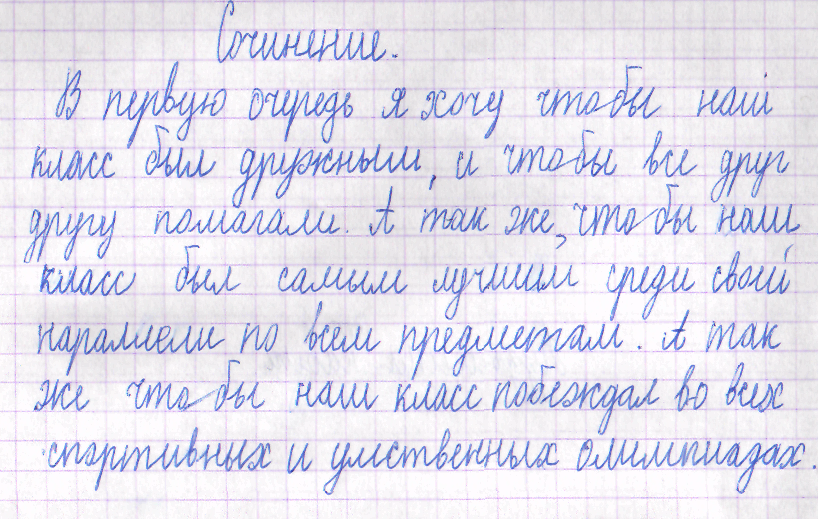 Сочинение.
В первую очередь я хочу чтобы наш
класс был дружным, и чтобы все друг
другу помагали. А так же, чтобы наш
класс был самым лучшим среди своей
параллели по всем предметам. А так
же чтобы наш класс побеждал во всех
спортивных и умственных олимпиадах.